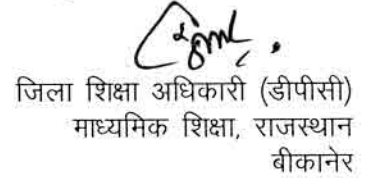 जिला शिक्षा अधिकारी (डीपीसी)
माध्यमिक शिक्षा, राजस्थान
बीकानेर